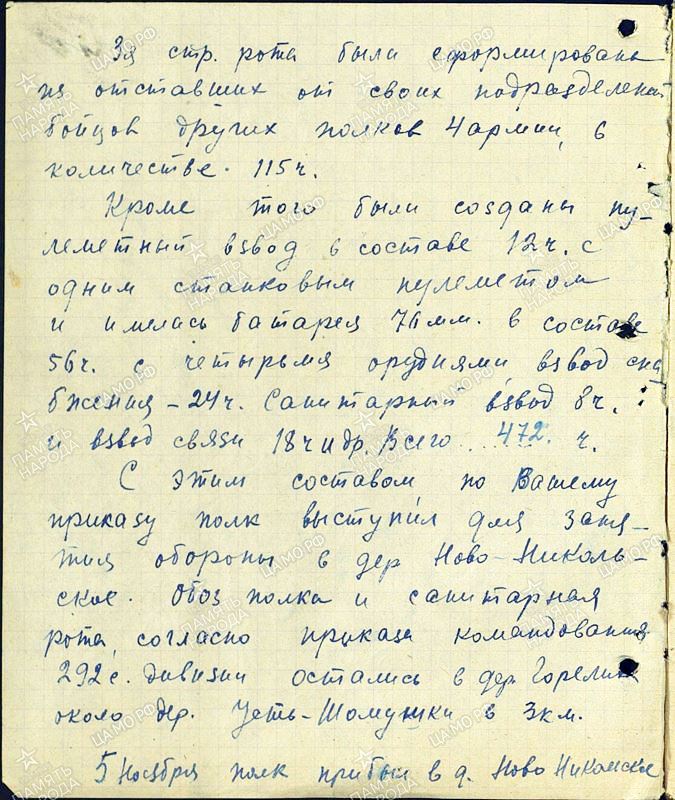 3я стр. рота были сформирована
из отставших от своих подразделений
бойцов других полков 4 армии, в
количестве. 115 ч.
Кроме того были созданы пу-
леметный взвод в составе 12 ч. с
одним станковым пулеметом
и имелась батарея 76 мм. в составе
56 ч. с четырьмя орудиями, взвод сна
бжения - 24 ч. Санитарный взвод 8 ч.
и взвод связи 18 ч и др. Всего 472. ч.
С этим составом по Вашему
приказу полк выступил для заня-
тия обороны в дер Ново-Николь-
ское. Обоз полка и санитарная
рота, согласно приказа командования
292 с. дивизии остались в дер. Горелиц
около дер. Усть-Шомушки в 3 км.
5 Ноября полк прибыл в д. Ново Никольское